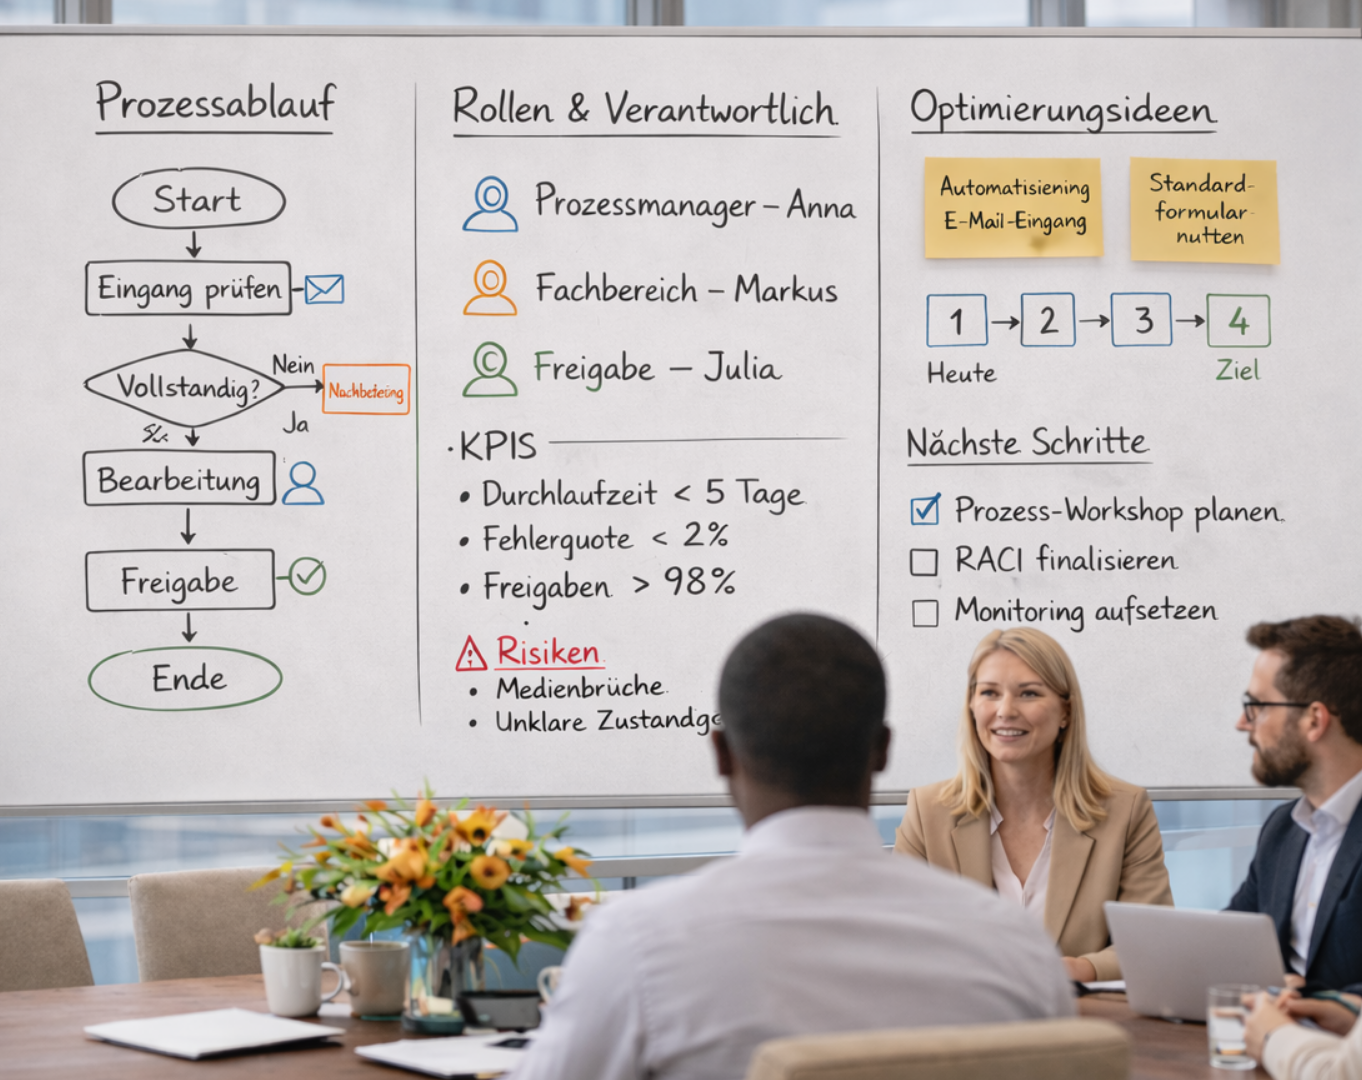 Prozessablauf
Start
Eingang prüfen
Vollstandig?
Nein
Nachbeteing
Ja
Bearbeitung
Freigabe
Ende
Rollen & Verantwortlich
Prozessmanager – Anna
Fachbereich – Markus
Freigabe – Julia
· KPIS
• Durchlaufzeit < 5 Tage
• Fehlerquote < 2%
• Freigaben > 98%
Risiken
• Medienbrüche
• Unklare Zustandg
Optimierungsideen
Automatisiening
E-Mail-Eingang
Standard-
formular
nutten
1 → 2 → 3 → 4
Heute
Ziel
Nächste Schritte
Prozess-Workshop planen.
RACI finalisieren
Monitoring aufsetzen